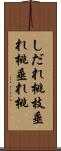 しだれ桃枝垂
れ桃垂れ桃